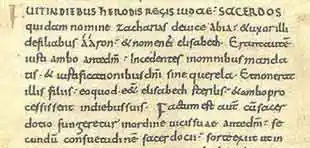 FUIT IN DIEBUS HERODIS REGIS IUDAE · SACERDOS
quidam nomine zacharias de uice abia · & uxor illi
de filiabus ááron · & nomen ei elisabeth · Erant autem
iusti ambo ante dm̄ · Incedentes in omnibus manda
tis · & iustificationibus dni sine querela · Et non erat
illis filius · eo quod eēt elisabeth sterilis · & ambo pro
cessissent in diebus suis · Factum est autē cū sacer
dotio fungeretur in ordine uicis suae ante dm̄ · se
cundū consuetudinē sacerdotii · sorte exiit ut in